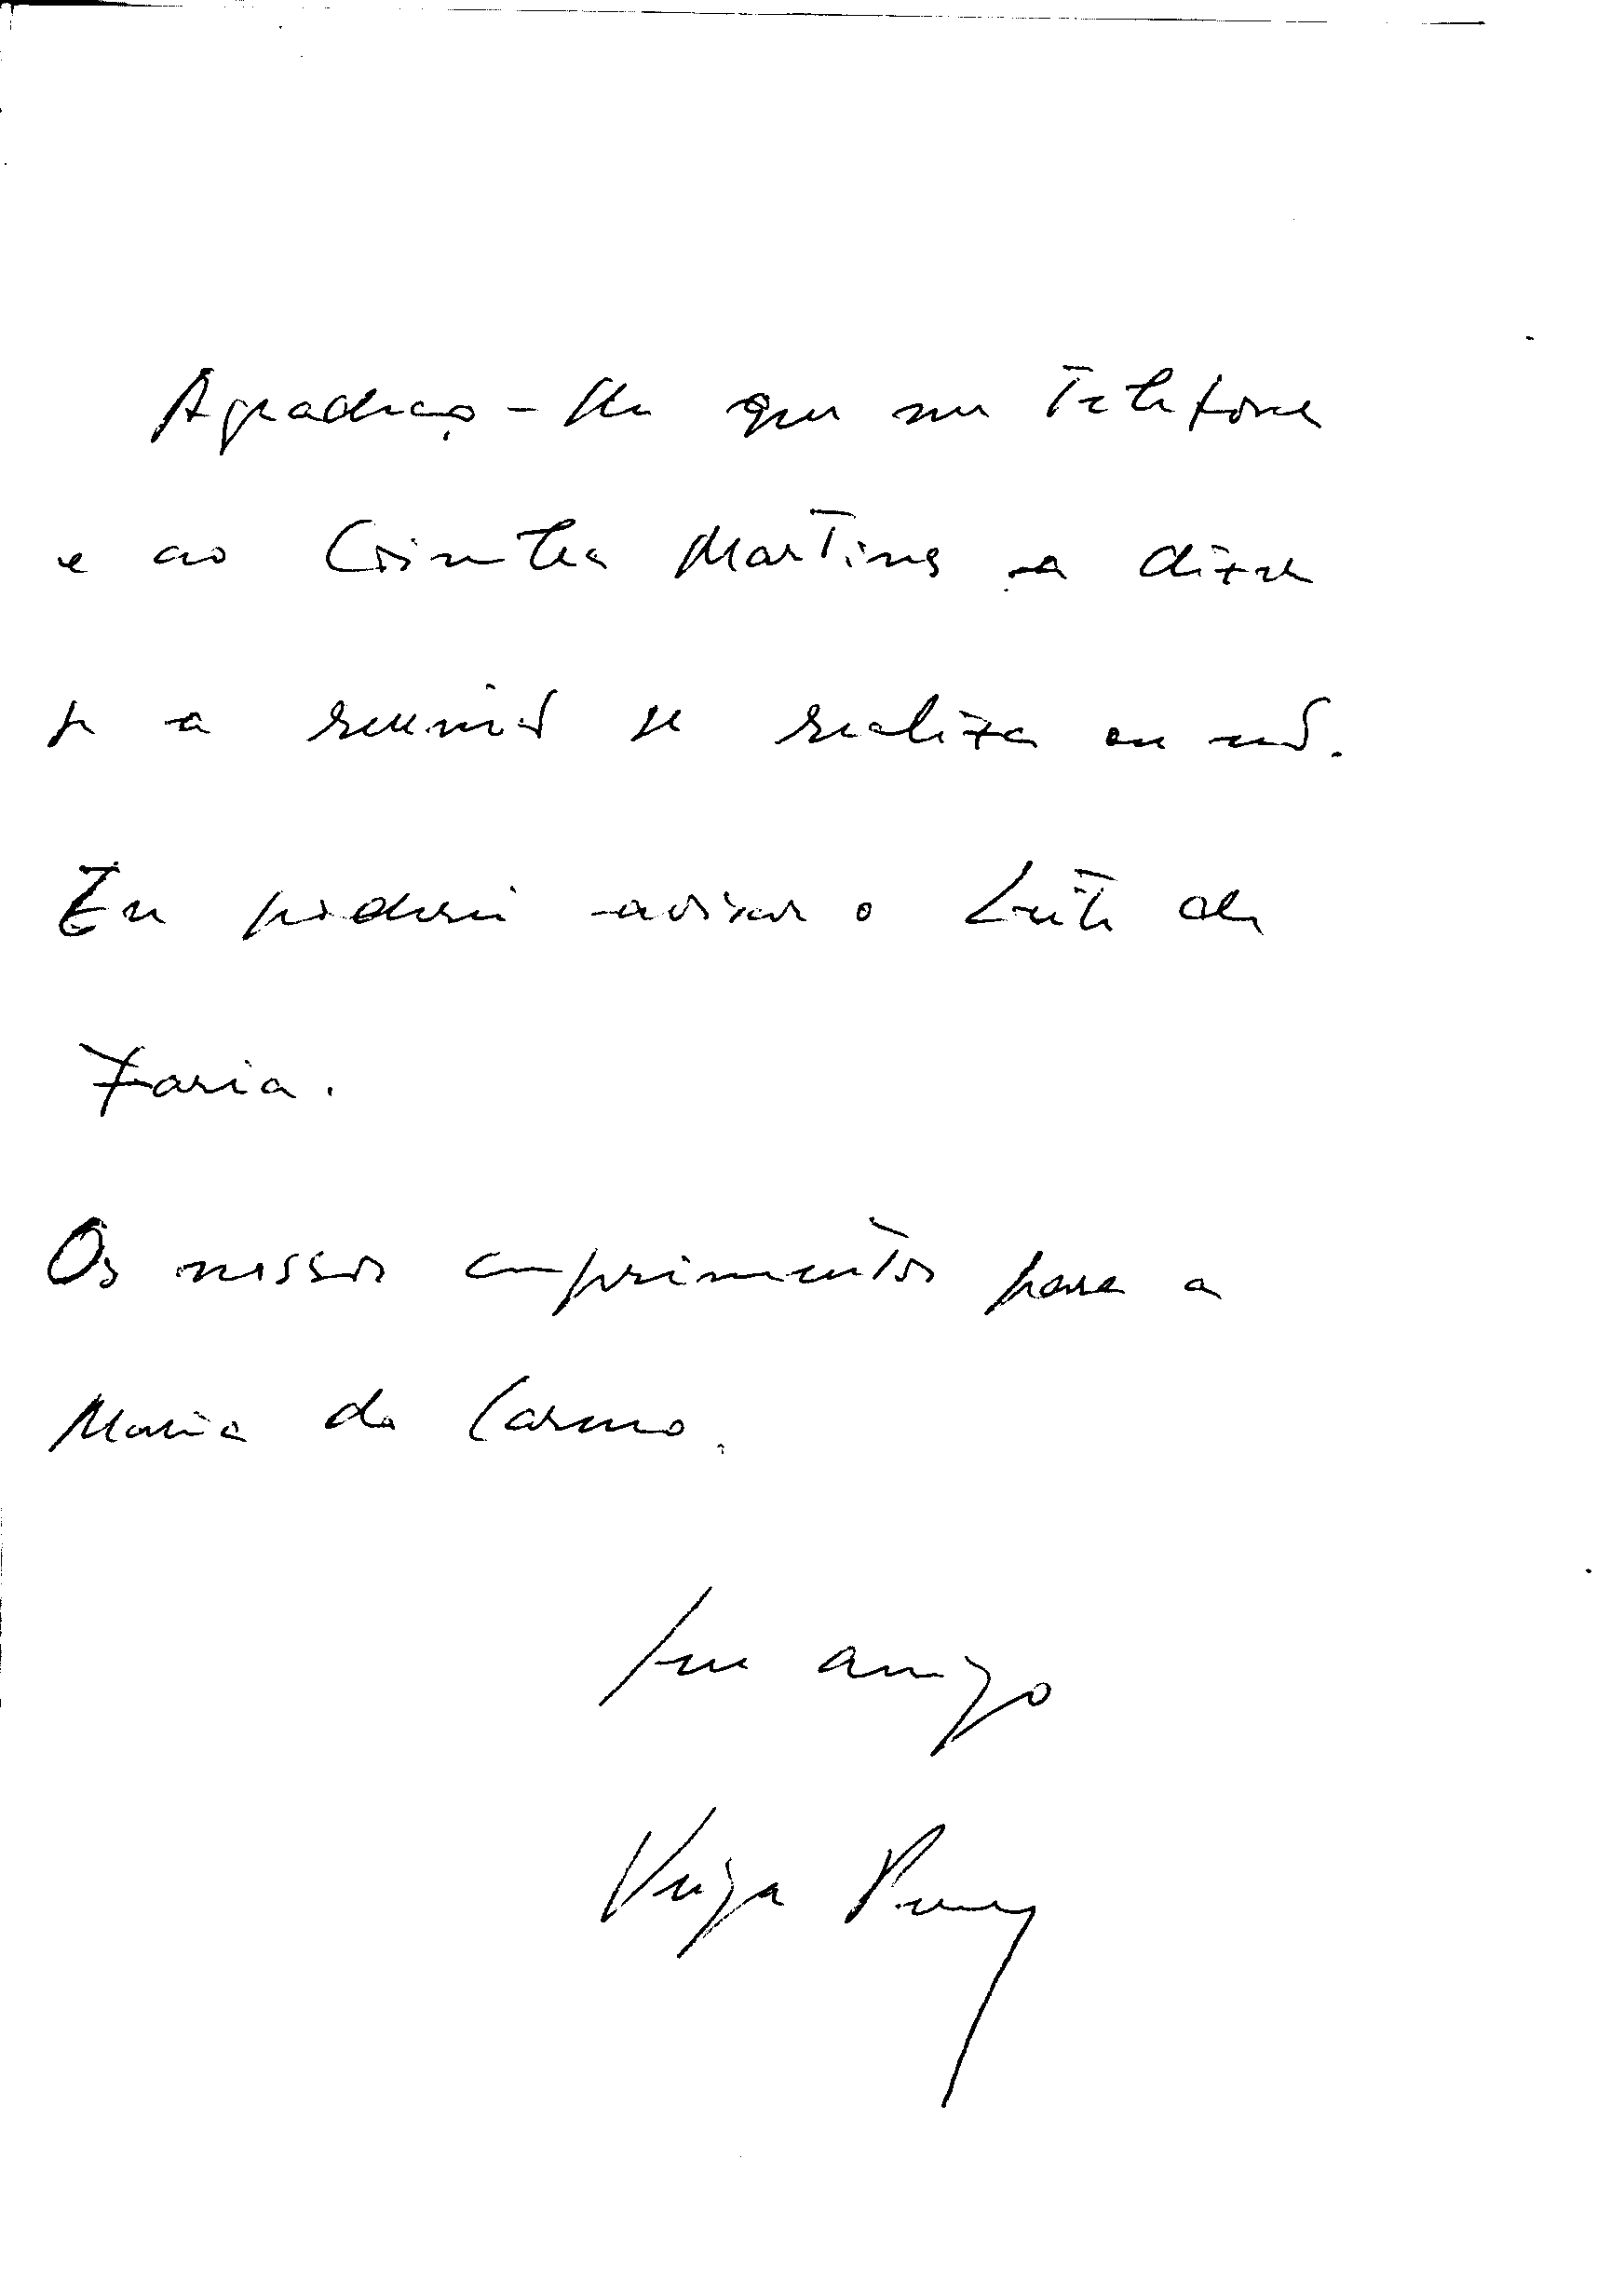 Agradeço-lhe que me telefone
e ao Coimbra Martins a dizer
se a reunião se realiza ou não.
Eu poderei avisar o Leite de
Faria.
Os nossos cumprimentos para a
Maria do Carmo.
Seu amigo
Veiga